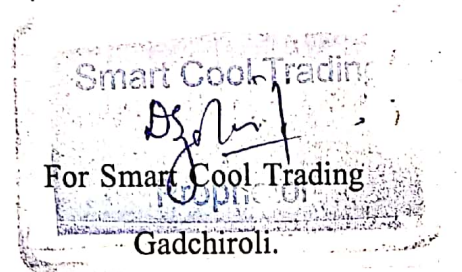 Smart Cool Trading
For Smart Cool Trading
Proprietor
Gadchiroli.